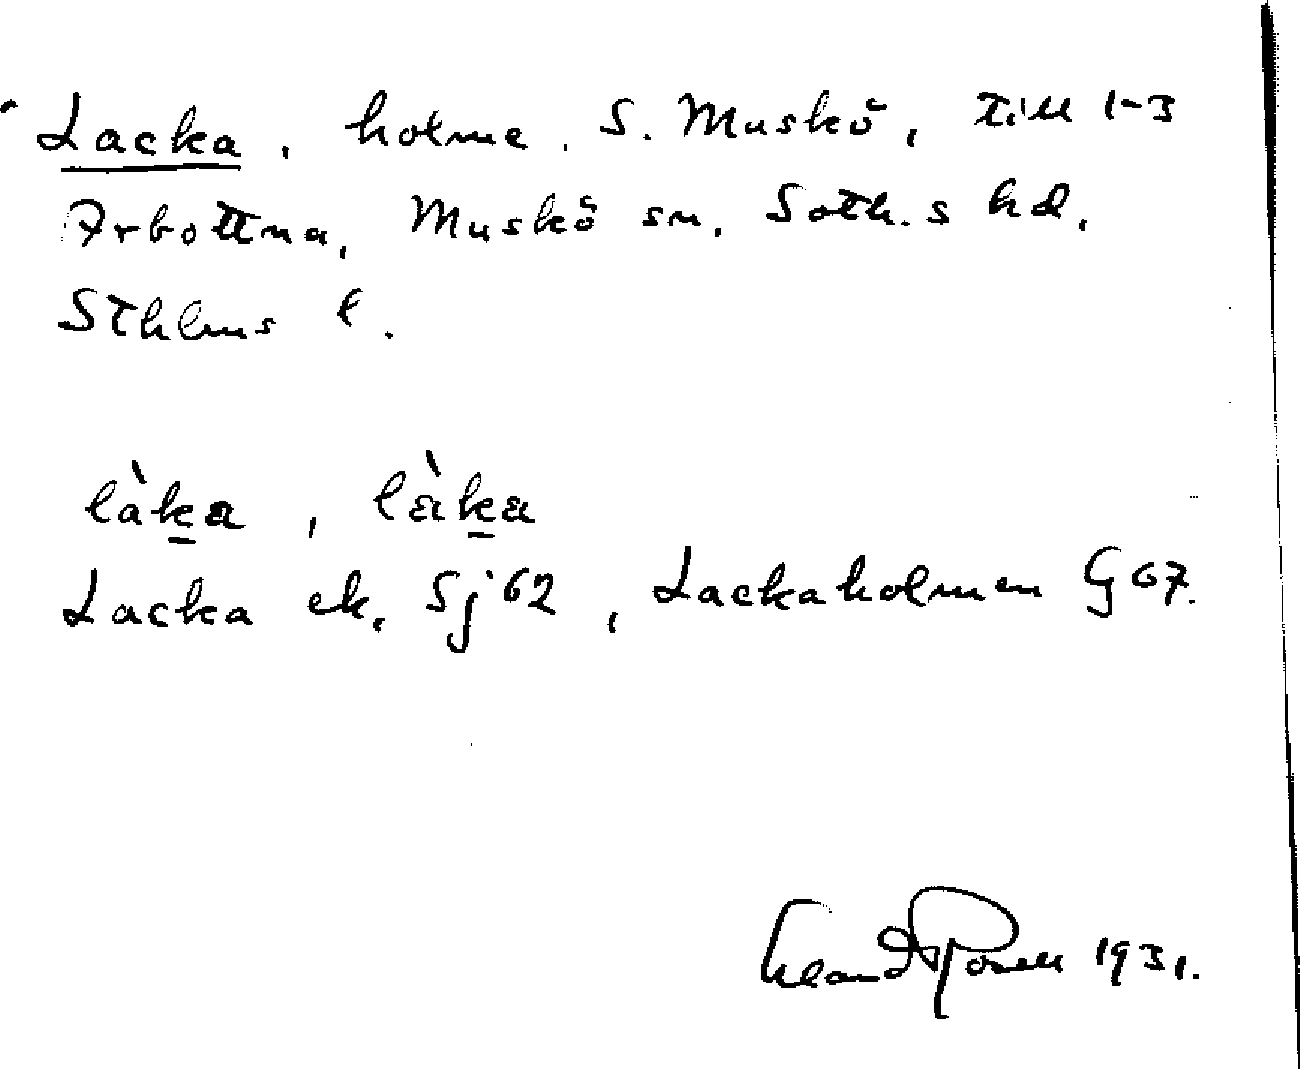 Lacka, holme, S. Muskö, till 1-3
Arbottna, Muskö sn, Soth.s hd,
Sthlms l.
làka, làka
Lacka ek. Sj 62, Lackaholmen G 67.
1931.